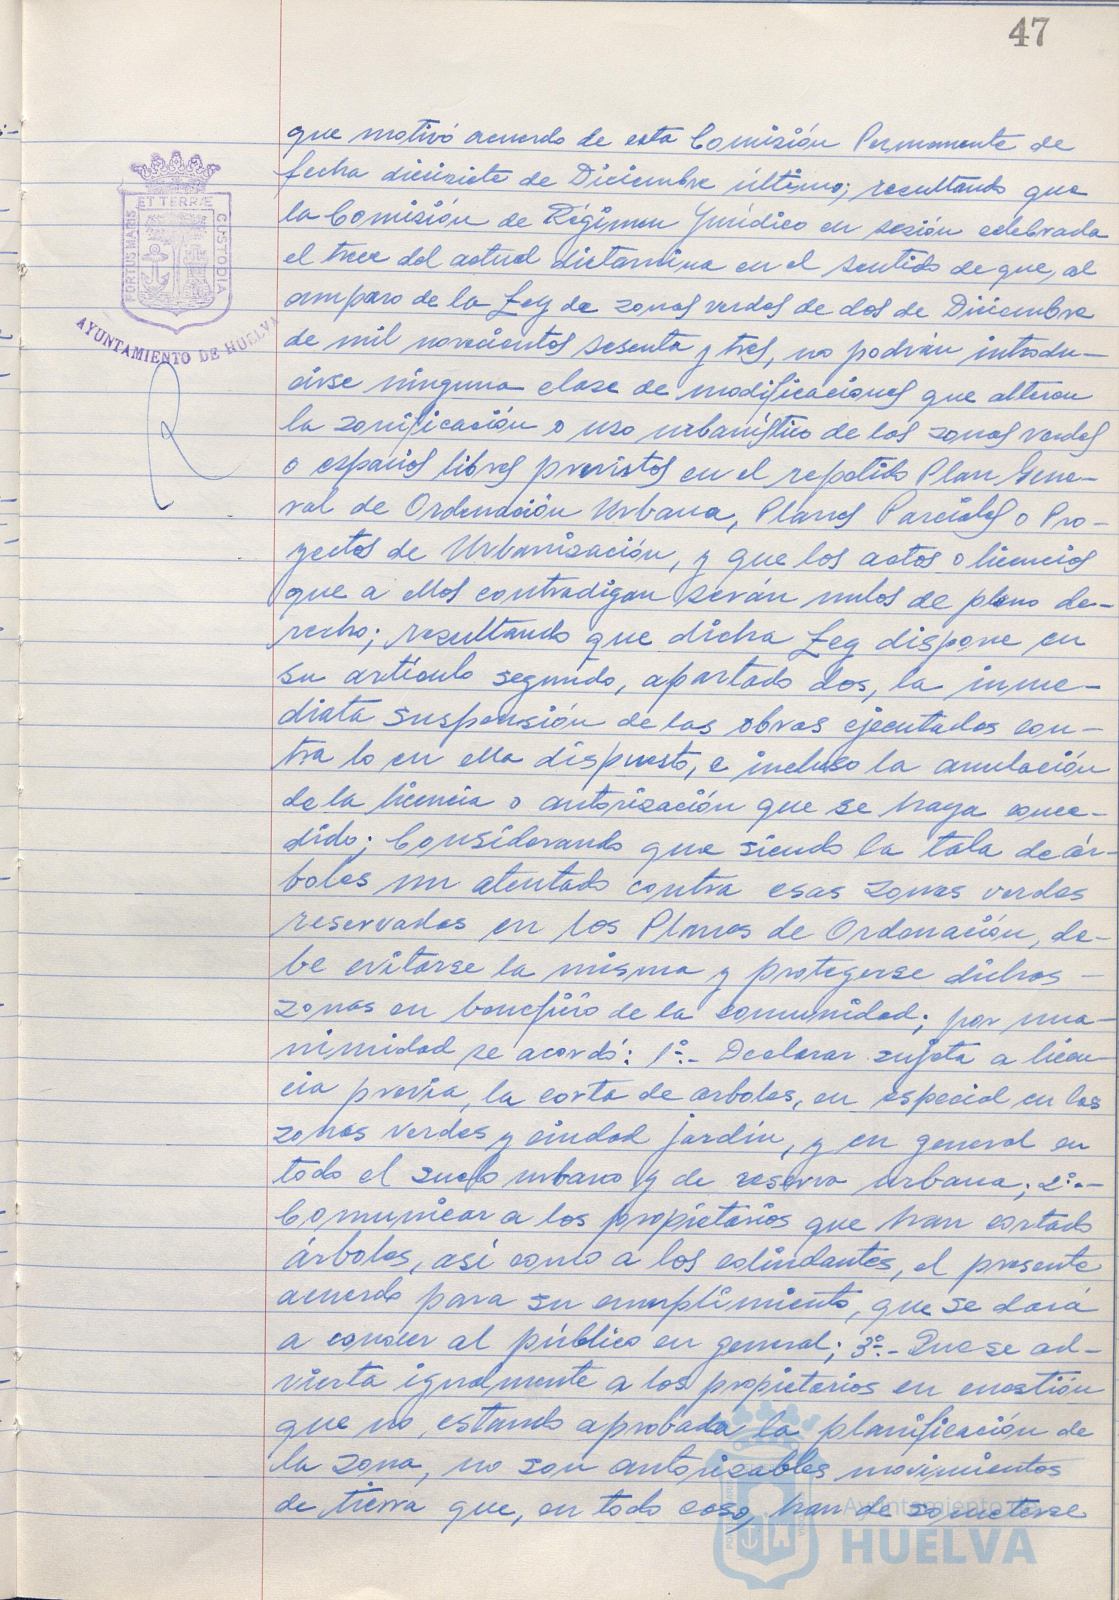 47
que motivó acuerdo de esta Comisión Permanente de
fecha diecisiete de Diciembre último; resultando que
la Comisión de Régimen Jurídico en sesión celebrada
el trece del actual dictamina en el sentido de que, al
amparo de la Ley de zonas verdes de dos de Diciembre
de mil novecientos sesenta y tres, no podrán introdu-
cirse ninguna clase de modificaciones que alteren
la zonificación o uso urbanístico de las zonas verdes
o espacios libres previstos en el repetido Plan Gene-
ral de Ordenación Urbana, Planes Parciales o Pro-
yectos de Urbanización, y que los actos o licencias
que a ellos contradigan serán nulos de pleno de-
recho; resultando que dicha Ley dispone en
su artículo segundo, apartado dos, la inme-
diata suspensión de las obras ejecutadas con-
tra lo en ella dispuesto, e incluso la anulación
de la licencia o autorización que se haya conce-
dido; Considerando que siendo la tala de ár-
boles un atentado contra esas zonas verdes
reservadas en los Planes de Ordenación, de-
be evitarse la misma y protegerse dichas
zonas en beneficio de la comunidad; por una-
nimidad se acordó: 1º.- Declarar sujeta a licen-
cia previa, la corta de arboles, en especial en las
zonas verdes y ciudad jardín, y en general en
todo el suelo urbano y de reserva urbana; 2º.-
Comunicar a los propietarios que han cortado
árboles, así como a los colindantes, el presente
acuerdo para su cumplimiento, que se dará
a conocer al público en general; 3º.- Que se ad-
vierta igualmente a los propietarios en cuestión
que no estando aprobada la planificación de
la zona, no son autorizables movimientos
de tierra que, en todo caso, han de someterse
PORTUS MARIS ET TERRÆ CUSTODIA
AYUNTAMIENTO DE HUELVA
Ayuntamiento de
HUELVA